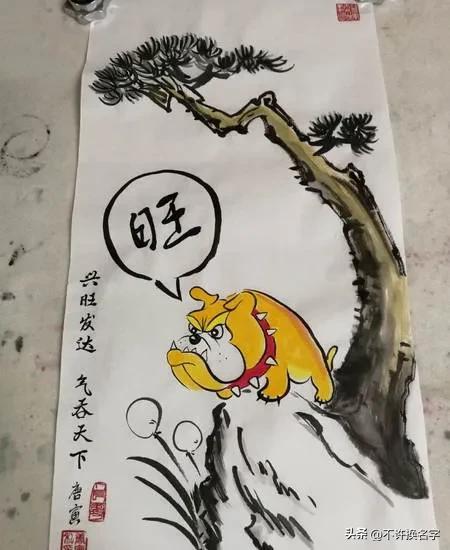 旺
兴旺发达 气吞天下 唐寅
头条 @不许换名字